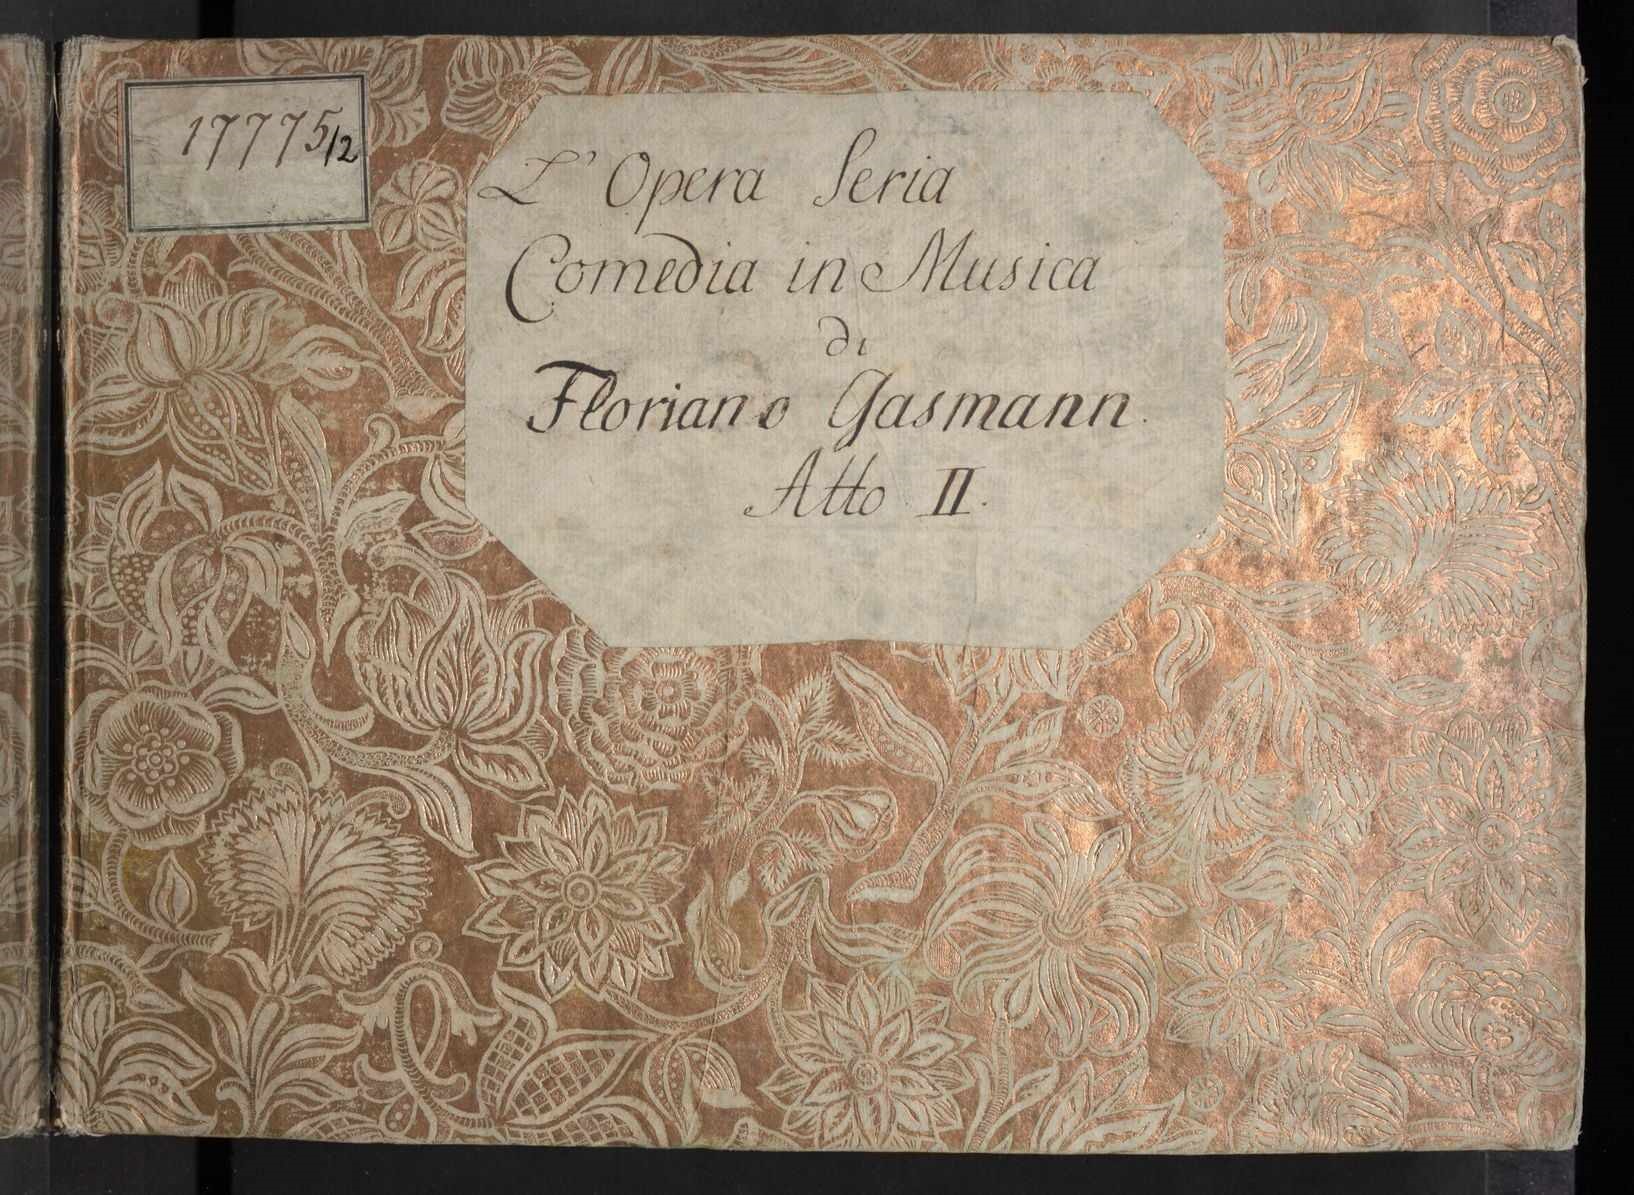 17775/2
L' Opera Seria
Comedia in Musica
di
Floriano Gasmann.
Atto II.